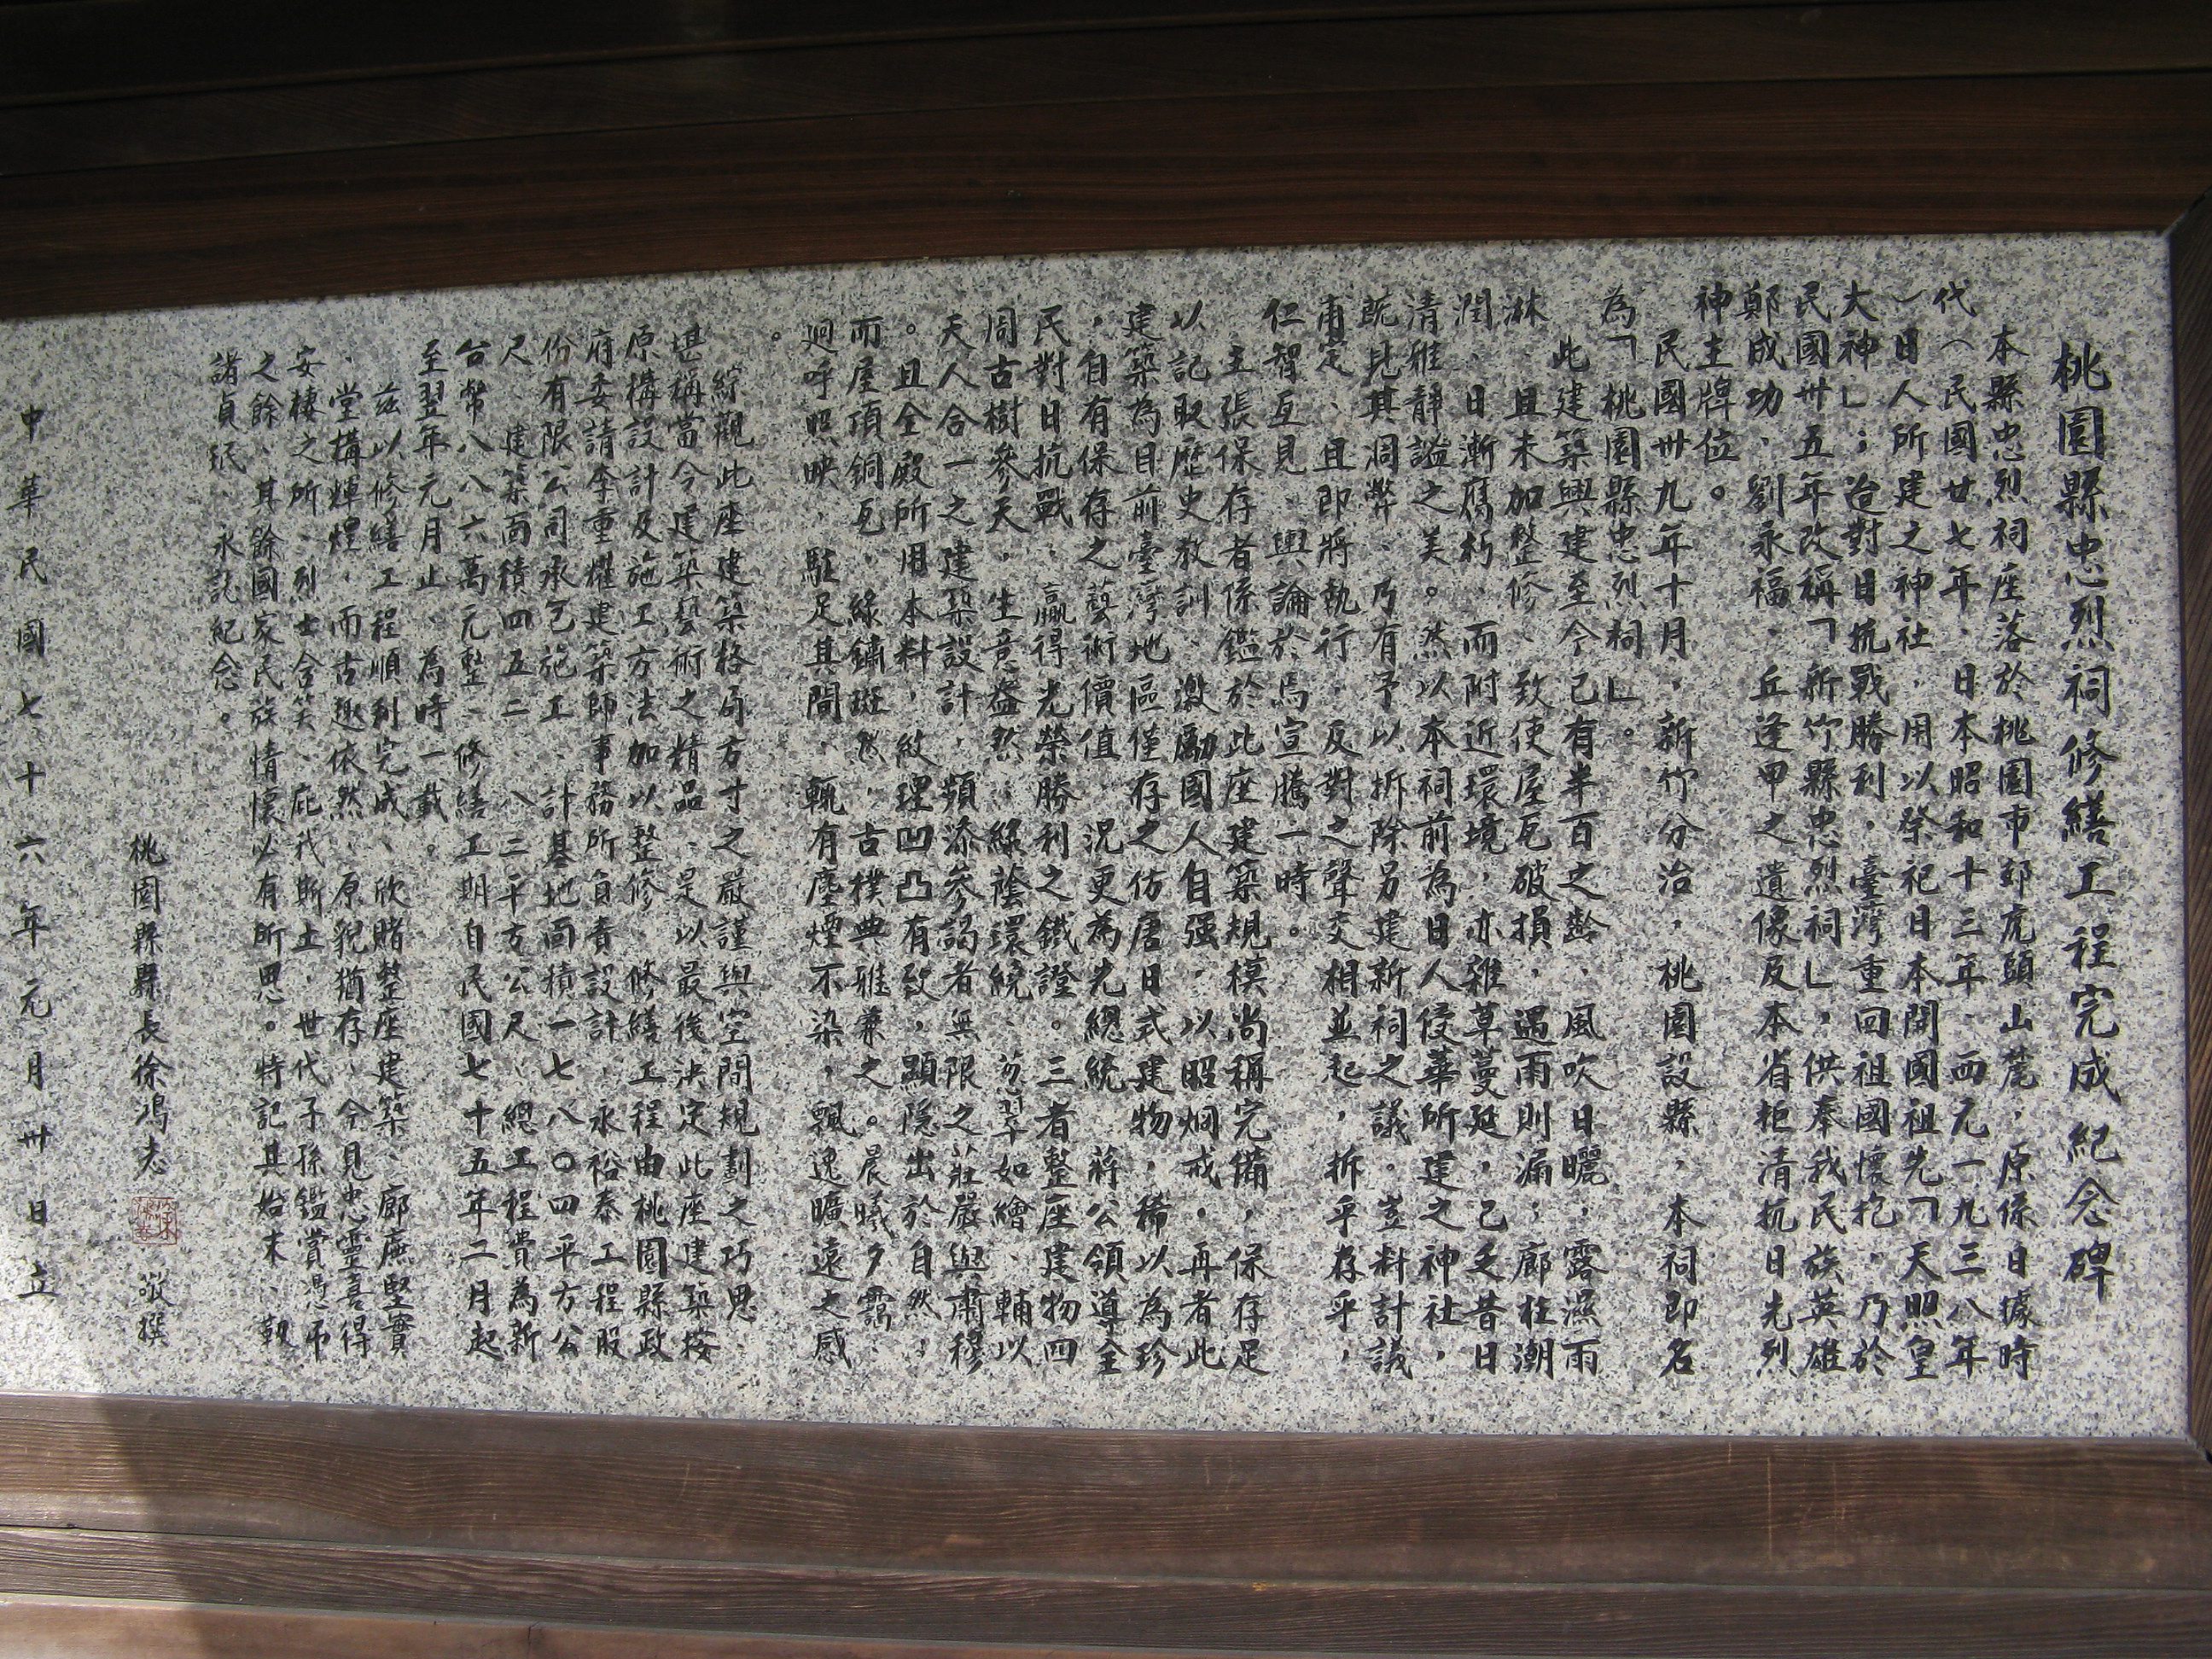 桃園縣忠烈祠修繕工程完成紀念碑
本縣忠烈祠座落於桃園市郊虎頭山麓，原係日據時
代（民國廿七年、日本昭和十三年、西元一九三八年
）日人所建之神社，用以祭祀日本開國祖先「天照皇
大神」；迨對日抗戰勝利，臺灣重回祖國懷抱，乃於
民國卅五年改稱「新竹縣忠烈祠」，供奉我民族英雄
鄭成功、劉永福、丘逢甲之遺像及本省拒清抗日先烈
神主牌位。
民國卅九年十月，新竹分治，桃園設縣，本祠即名
為「桃園縣忠烈祠」。
此建築興建至今已有半百之齡，風吹日曬，露濕雨
淋，且未加整修、致使屋瓦破損，遇雨則漏；廊柱潮
潤、日漸腐朽，而附近環境，亦雜草蔓延，已乏昔日
清雅靜謐之美。然以本祠前為日人侵華所建之神社，
既比其凋弊、乃有予以拆除另建新祠之議。豈料計議
甫定、且即將執行，反對之聲交相並起，拆乎存乎，
仁智互見、輿論於焉宣騰一時。
主張保存者係鑑於此座建築規模尚稱完備，保存足
以記取歷史教訓、激勵國人自強，以昭炯戒。再者此
建築為目前臺灣地區僅存之仿唐日式建物，稀以為珍
，自有保存之藝術價值。況更為先總統　蔣公領導全
民對日抗戰，贏得光榮勝利之鐵證。三者整座建物四
周古樹參天，生意盎然；綠蔭環繞、蒼翠如繪、輔以
天人合一之建築設計，頻添參謁者無限之莊嚴與肅穆
。且全殿所用木料，紋理凹凸有致，顯隱出於自然；
而屋頂銅瓦，綠鏽斑然，古樸典雅兼之。晨曦夕靄、
迴呼照映，駐足其間、輒有塵煙不染，飄逸曠遠之感
。
綜觀此座建築格局方寸之嚴謹與空間規劃之巧思、
堪稱當今建築藝術之精品，是以最後決定此座建築按
原構設計及施工方法加以整修，修繕工程由桃園縣政
府委請李重耀建築師事務所負責設計，永裕泰工程股
份有限公司承包施工、計基地面積一七八〇四平方公
尺、建築面積四五二、八三平方公尺、總工程費為新
台幣八八六萬元整、修繕工期自民國七十五年二月起
至翌年元月止、為時一載。
茲以修繕工程順利完成、欣睹整座建築、廊廡堅實
、堂構輝煌，而古趣依然、原貌猶存、今見忠靈喜得
安棲之所、烈士含笑、庇我斯土，世代子孫鑑賞憑弔
之餘、其餘國家民族情懷必有所思。特記其始末、鞁
諸貞珉、永誌紀念。
桃園縣縣長徐鴻志　敬撰
中華民國七十六年元月卅日立